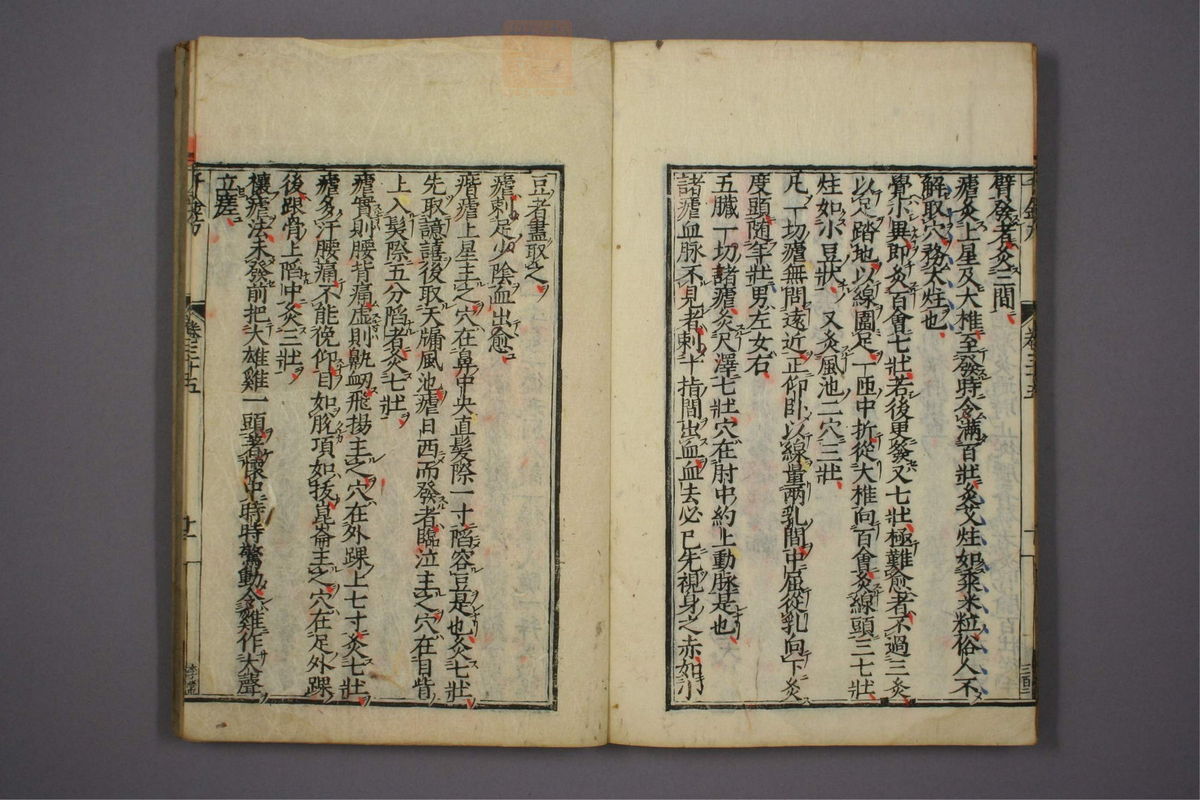 臂發者灸三間
瘧灸上星及大椎至發時令滿百壯灸艾炷如黍米粒俗人不
解取穴務大炷也
覺小異即灸百會七壯若後更發又七壯極難愈者不過三灸
以足踏地以線圍足一匝中折從大椎向百會灸線頭三七壯
炷如小豆狀 又灸風池二穴三壯
凡一切瘧無問遠近正仰卧以線量兩乳間中屈從乳向下灸
度頭隨年壯男左女右
五臟一切諸瘧灸尺澤七壯穴在肘中約上動脉是也
諸瘧血脉不見者刺十指間出血血去必已先視身之赤如小
豆者盡取之
瘧刺足少陰血出愈
痎瘧上星主之穴在鼻中央直髮際一寸陷容豆是也灸七壯
先取譩譆後取天牖風池瘧日西而發者臨泣主之穴在目眥
上入髮際五分陷者灸七壯
瘧實則腰背痛虛則鼽衂飛揚主之穴在外踝上七寸灸七壯
瘧多汗腰痛不能俛仰目如脫項如拔崑崙主之穴在足外踝
後跟骨上陷中灸三壯
禳瘧法未發前抱大雄雞一頭著懷中時時驚動令雞作大聲
立瘥
卷三十五